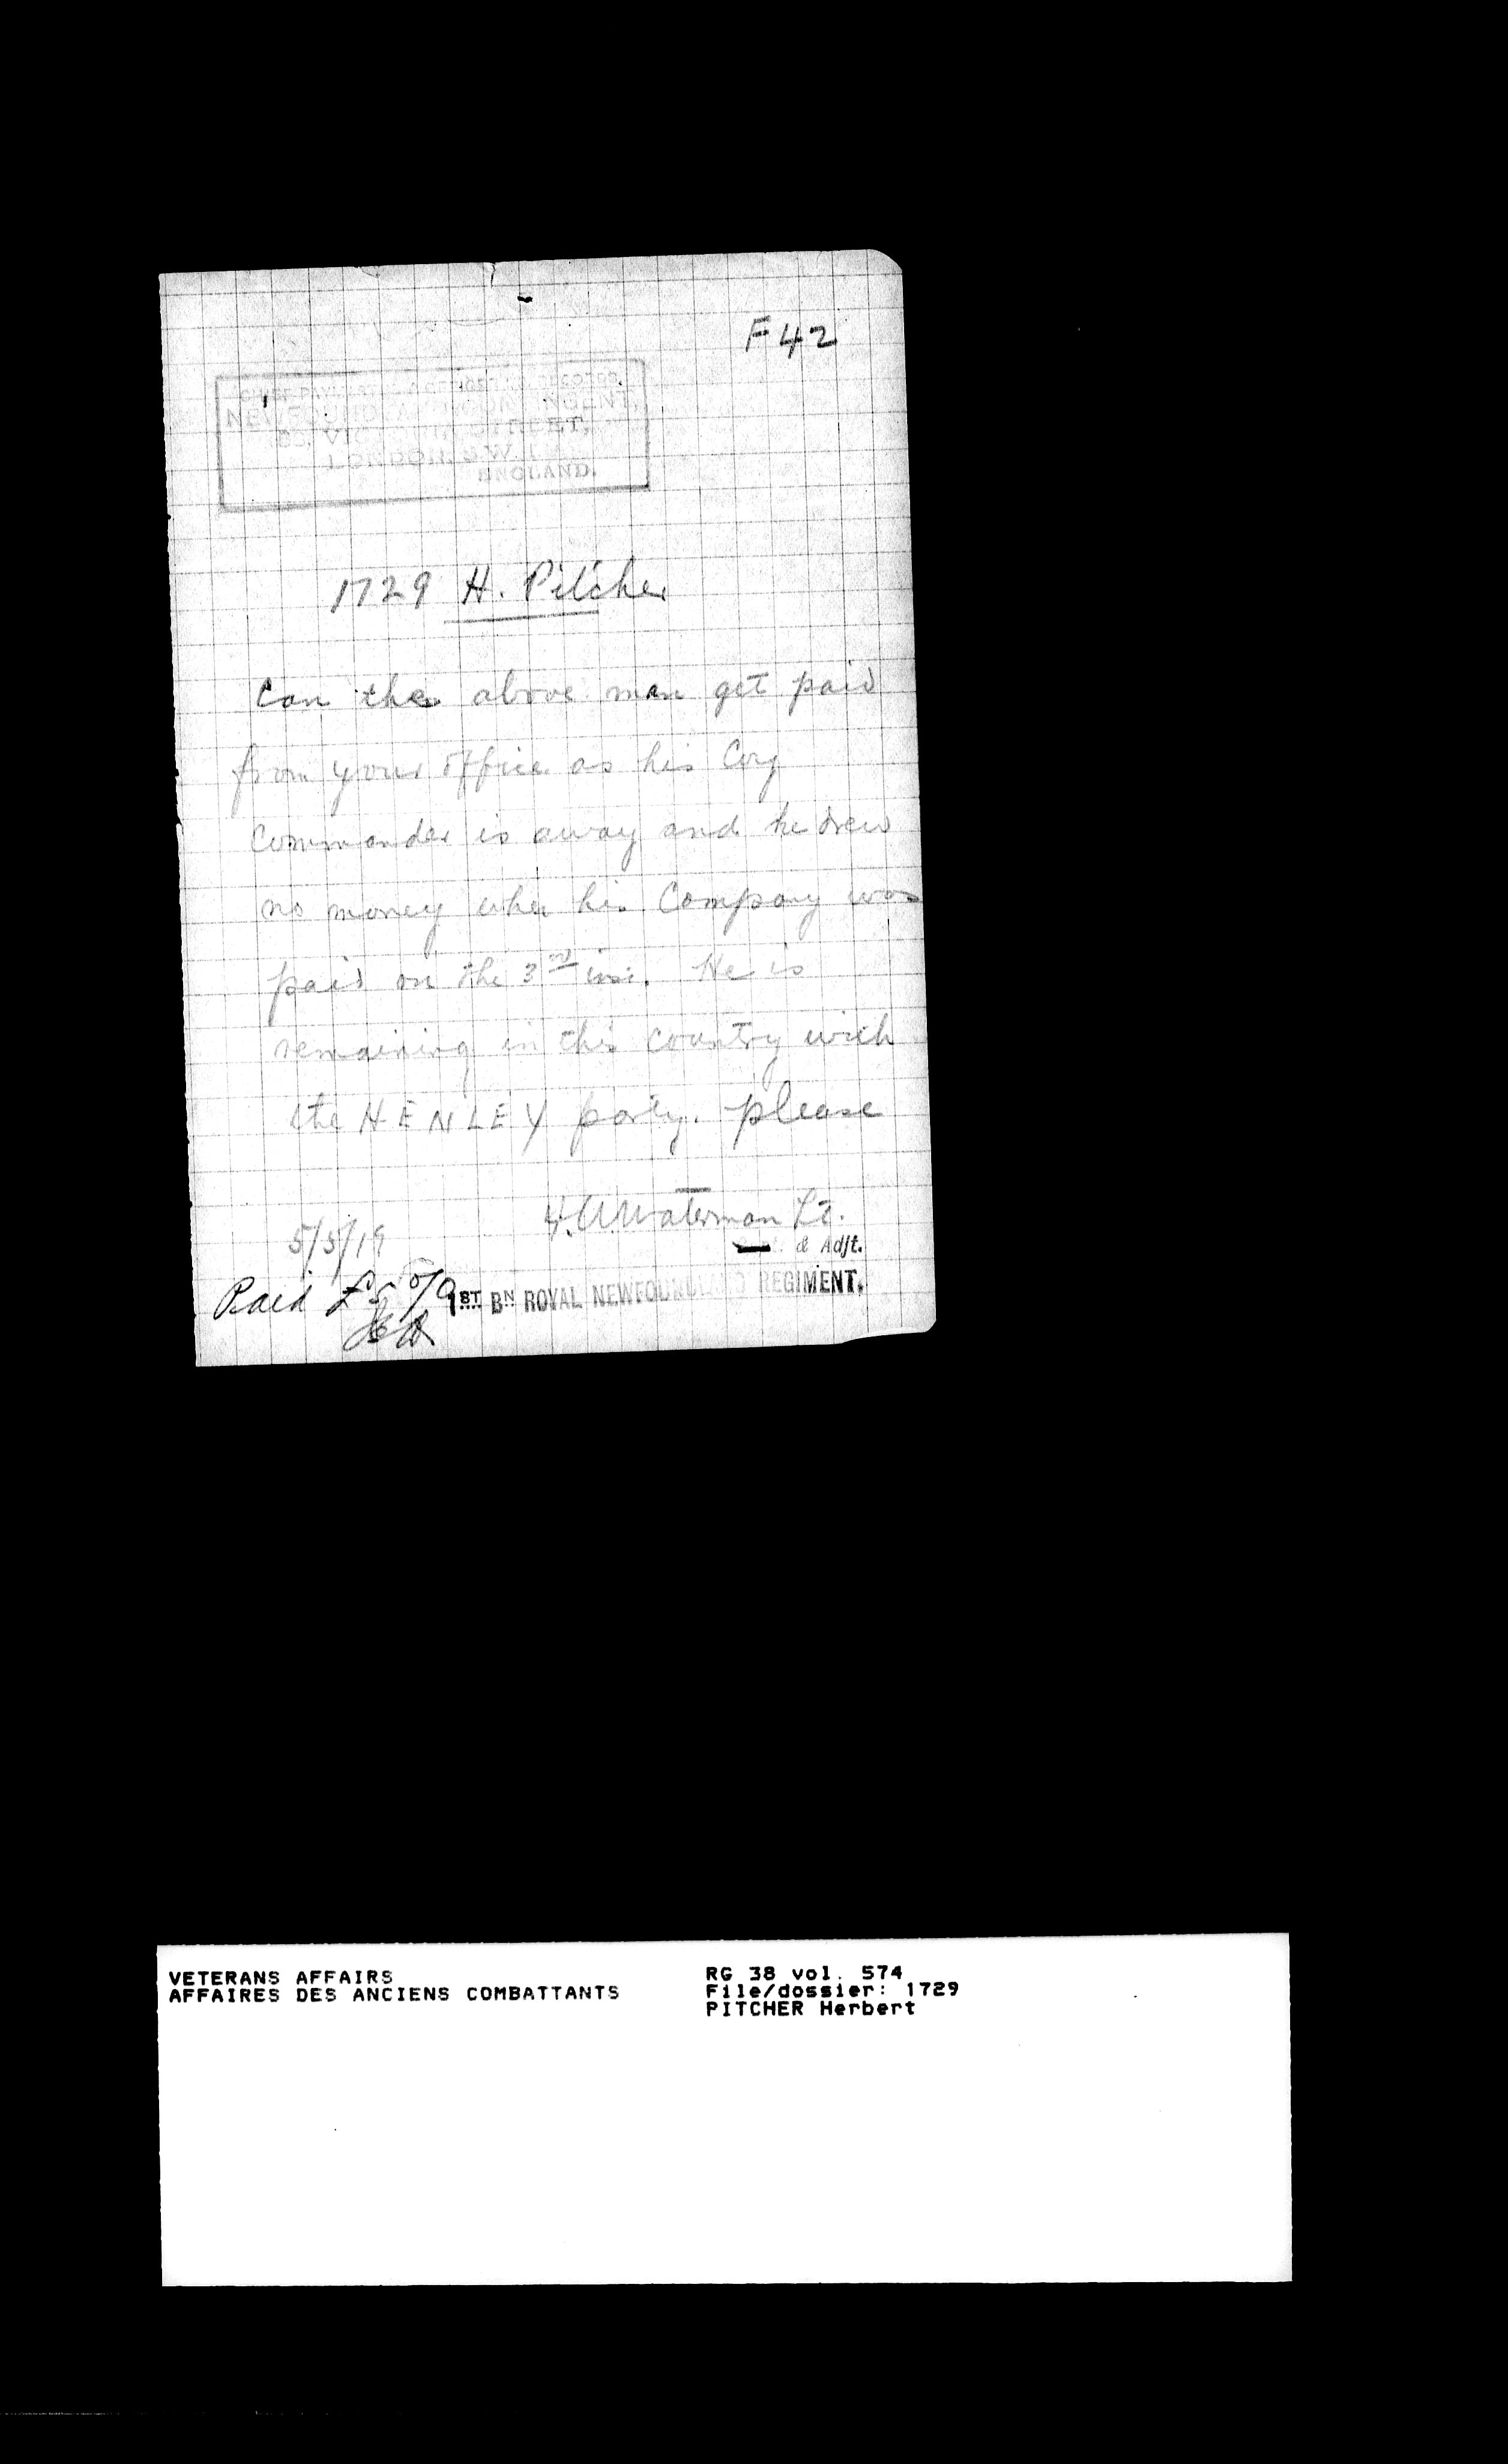 F 42
STREET,
LONDON, S.W.1
ENGLAND.
1729 H. Pitcher
Can the above man get paid
from your office as his Coy
Commander is away and he drew
no money when his Company was
paid on the 3rd inst. He is
remaining in this country with
the HENLEY party. please
H.A. Waterman Lt.
5/5/19
& Adjt.
Paid £5 0/0
1ST BN ROYAL NEWFOUNDLAND REGIMENT.
VETERANS AFFAIRS
AFFAIRES DES ANCIENS COMBATTANTS
RG 38 vol. 574
File/dossier: 1729
PITCHER Herbert